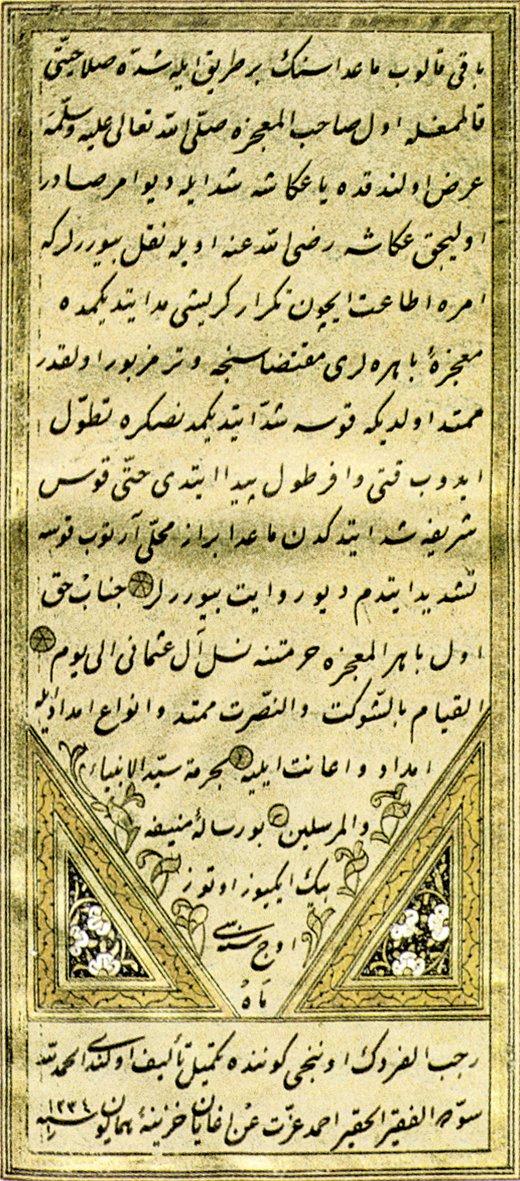 باقی قالوب ماعداسنك بر طریق ایله شدّه صلاحیتی
قالممغله اول صاحب المعجزه صلّی الله تعالی علیه وسلّمه
عرض اولندقده یا عكاشه شد ایله دیو امر صادر
اولیجق عكاشه رضی الله عنه اویله نقل بیوررلر كه
امره اطاعت ایچون تكرار كریشی مد ایتدیكمده
معجزهٔ باهره لری مقتضاسنجه وتر مزبور اولقدر
ممتد اولدیكه قوسه شدّ ایتدیكمدنصكره تطوّل
ایدوب قتی وافر طول پیدا ایتدی حتّی قوس
شریفه شد ایتدكدن ماعدا براز محلّی آرتوب قوسه
تشدید ایتدم دیو روایت بیوررلر جناب حق
اول باهر المعجزه حرمتنه نسل آل عثمانی الی یوم
القیام بالشّوكت والنصّرت ممتد وانواع امداد ایله
امداد واعانت ایلیه بحرمة سیّد الانبیاء
والمرسلین بو رسالهٔ منیفه
بیك ایكیوز اوتوز
اوچ سنه سی
ماه
رجب الفردك اوننجی كوننده تكمیل تألیف اولندی الحمد لله
سوّده الفقیر الحقیر احمد عزّت عن اغایان خزینهٔ همایون سنه ١٢٣٤